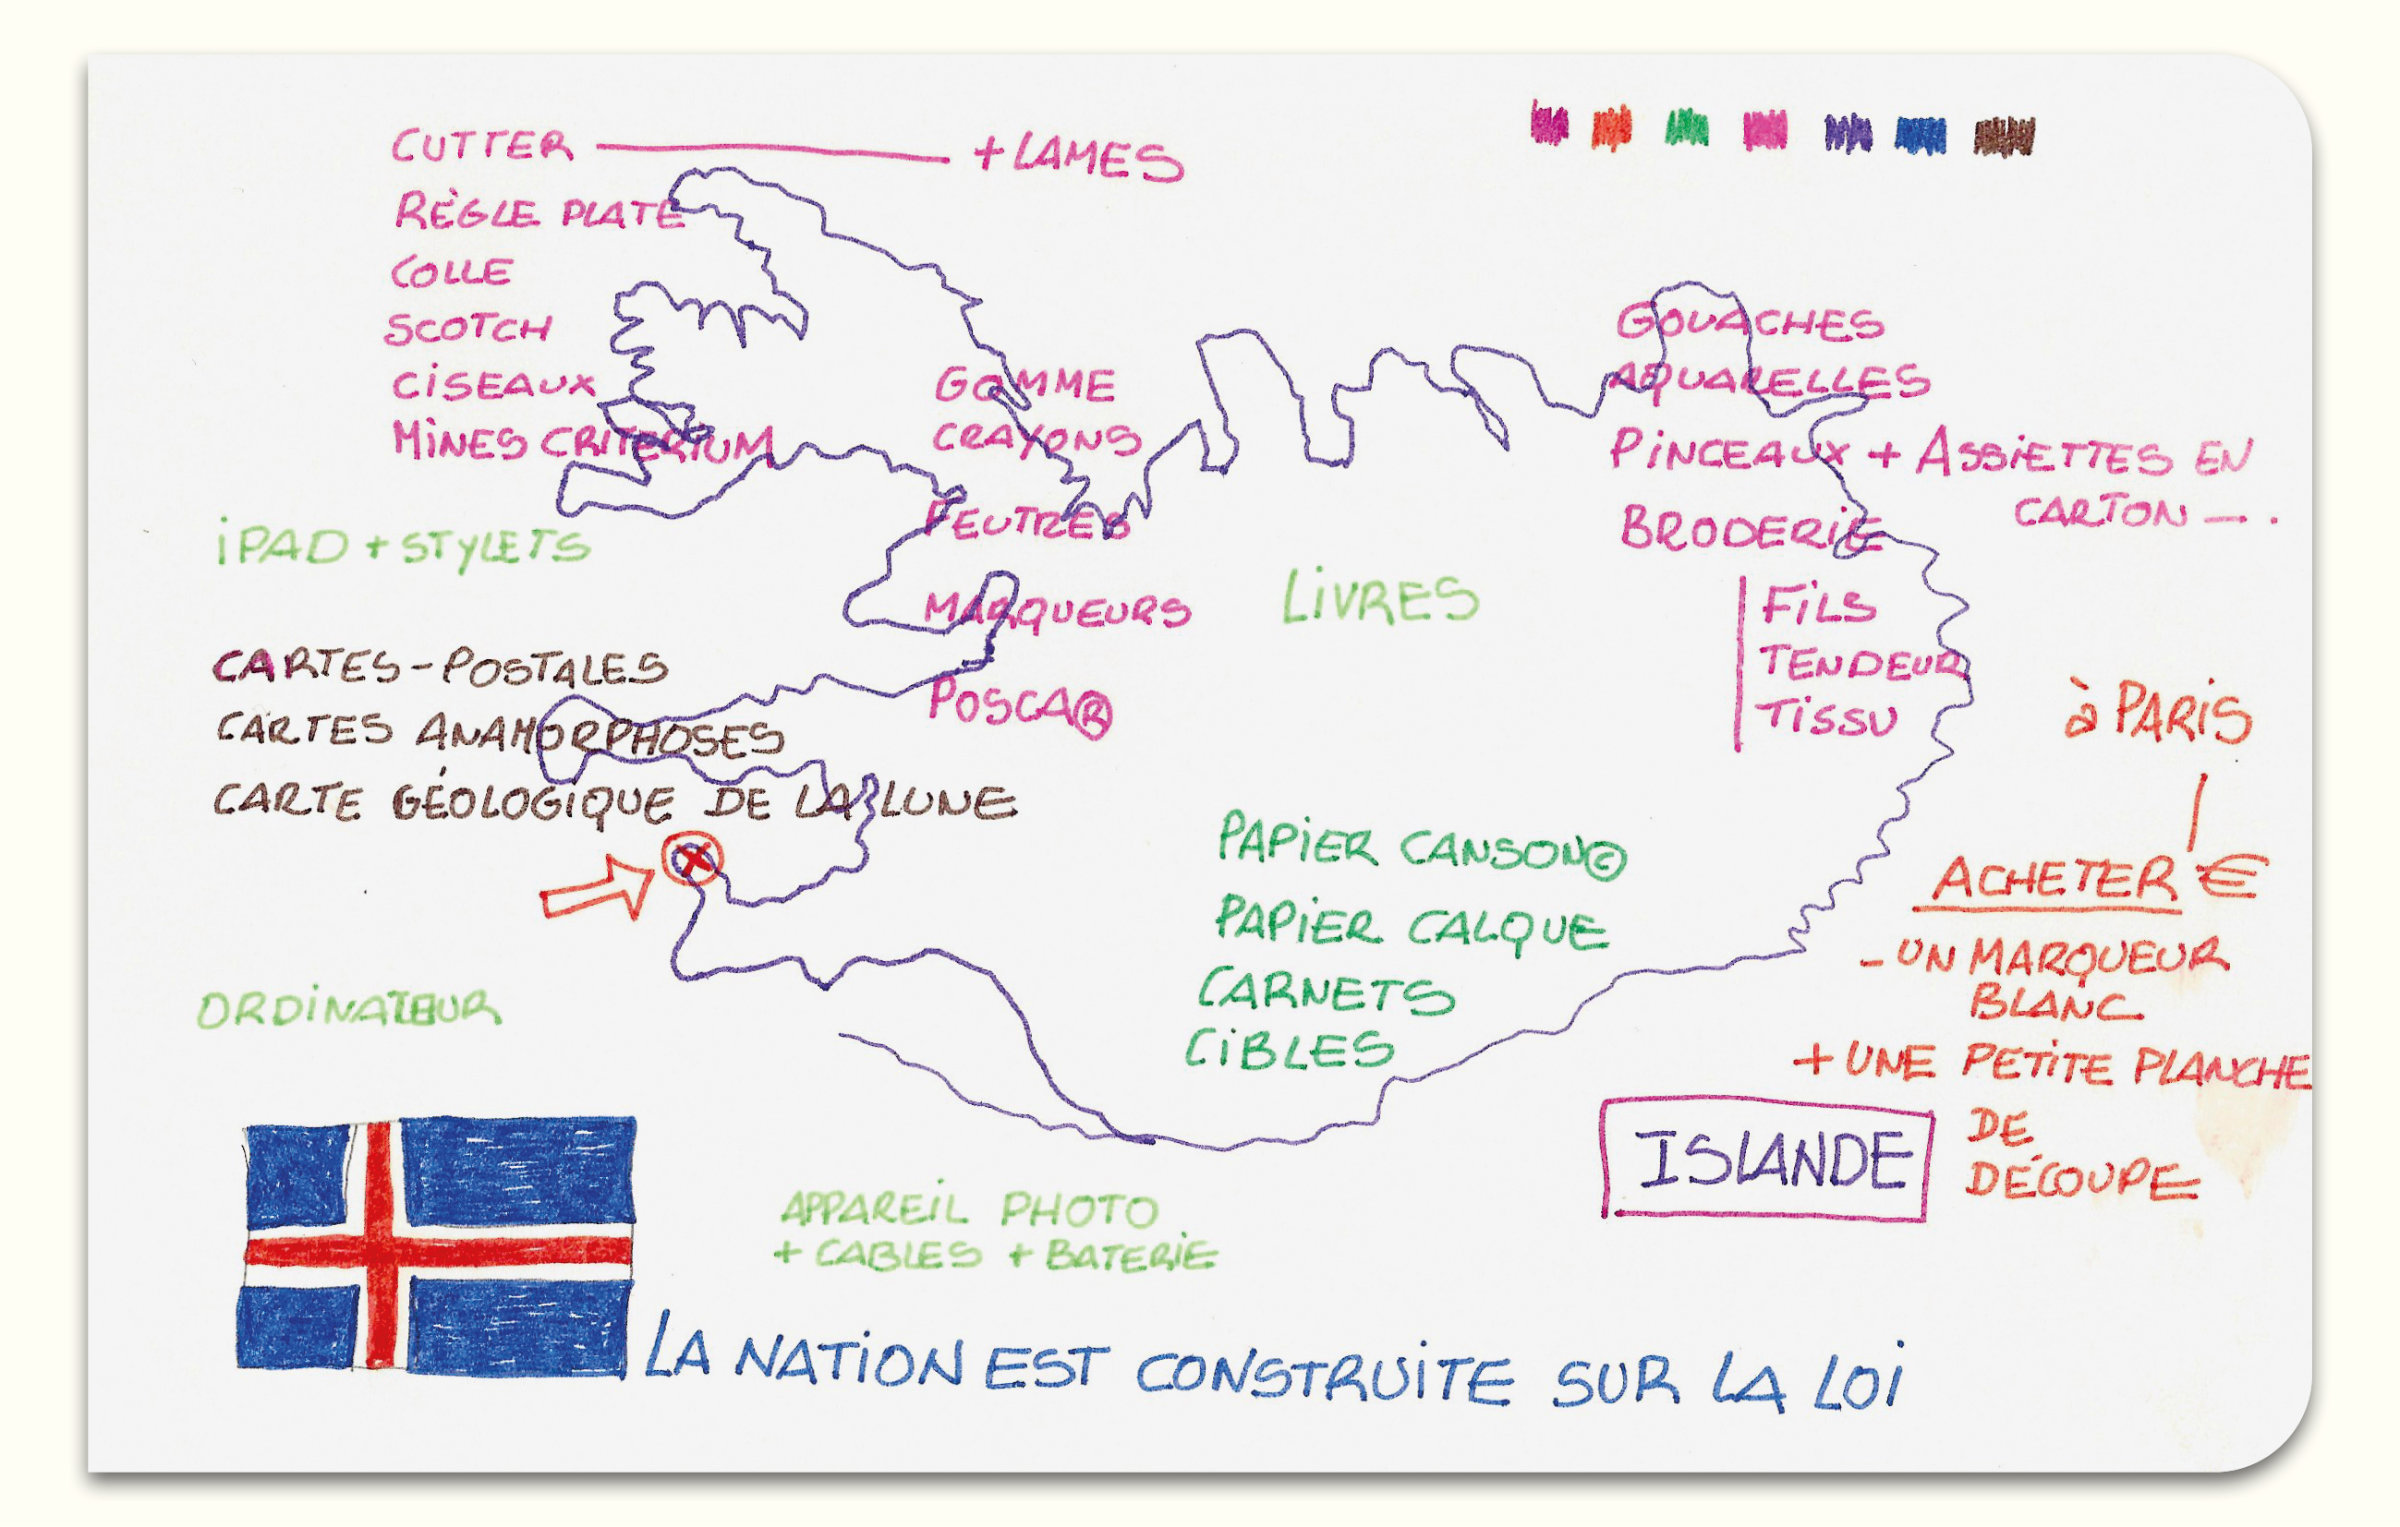 CUTTER — + LAMES
RÈGLE PLATE
COLLE
SCOTCH
CISEAUX
MINES CRITERIUM
GOMME
CRAYONS
FEUTRES
MARQUEURS
POSCA®
GOUACHES
AQUARELLES
PINCEAUX + ASSIETTES EN
CARTON — .
BRODERIE
FILS
TENDEUR
TISSU
IPAD + STYLETS
LIVRES
CARTES-POSTALES
CARTES ANAMORPHOSES
CARTE GÉOLOGIQUE DE LA LUNE
à PARIS
ACHETER €
- UN MARQUEUR
BLANC
+ UNE PETITE PLANCHE
DE
DÉCOUPE
PAPIER CANSON©
PAPIER CALQUE
CARNETS
CIBLES
ORDINATEUR
ISLANDE
APPAREIL PHOTO
+ CABLES + BATERIE
LA NATION EST CONSTRUITE SUR LA LOI